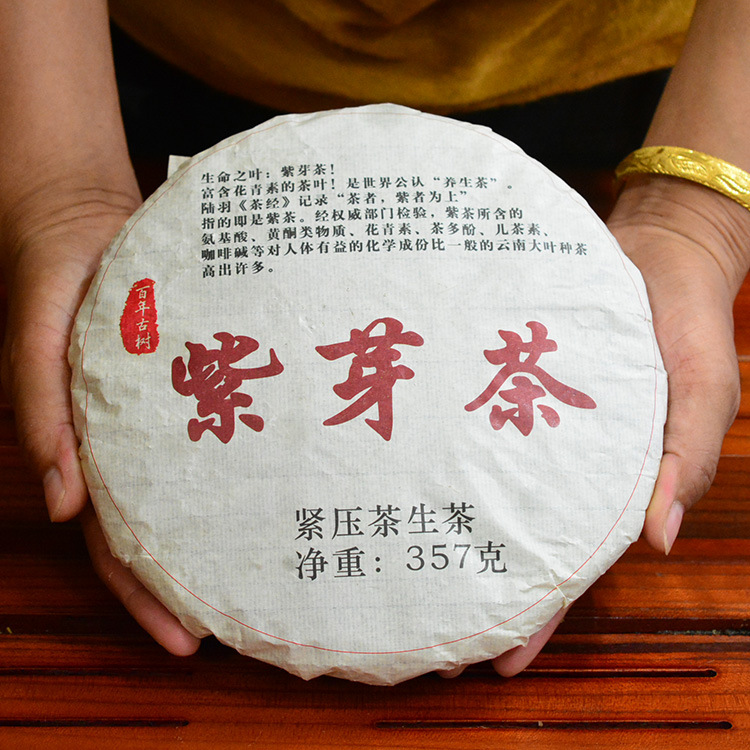 生命之叶：紫芽茶！
富含花青素的茶叶！是世界公认“养生茶”。
陆羽《茶经》记录“茶者，紫者为上”
指的即是紫茶。经权威部门检验，紫茶所含的
氨基酸、黄酮类物质、花青素、茶多酚、儿茶素、
咖啡碱等对人体有益的化学成份比一般的云南大叶种茶
高出许多。
百年古树
紫芽茶
紧压茶生茶
净重：357克